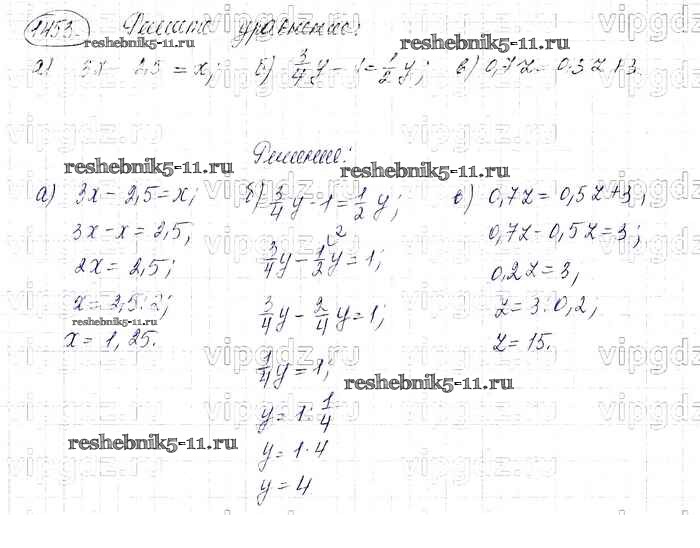 1453. Решите уравнение:
а) 3x - 2,5 = x; б) 3/4 y - 1 = 1/2 y; в) 0,7z = 0,5z + 3
Решение:
а) 3x - 2,5 = x;
3x - x = 2,5;
2x = 2,5;
x = 2,5 : 2;
x = 1,25.
б) 3/4 y - 1 = 1/2 y;
3/4 y - 1/2 y = 1;
2
3/4 y - 2/4 y = 1;
1/4 y = 1;
y = 1 : 1/4
y = 1 · 4
y = 4
в) 0,7z = 0,5z + 3;
0,7z - 0,5z = 3;
0,2z = 3,
z = 3 : 0,2,
z = 15.
reshebnik5-11.ru
reshebnik5-11.ru
reshebnik5-11.ru
reshebnik5-11.ru
reshebnik5-11.ru
reshebnik5-11.ru
reshebnik5-11.ru
vipgdz.ru